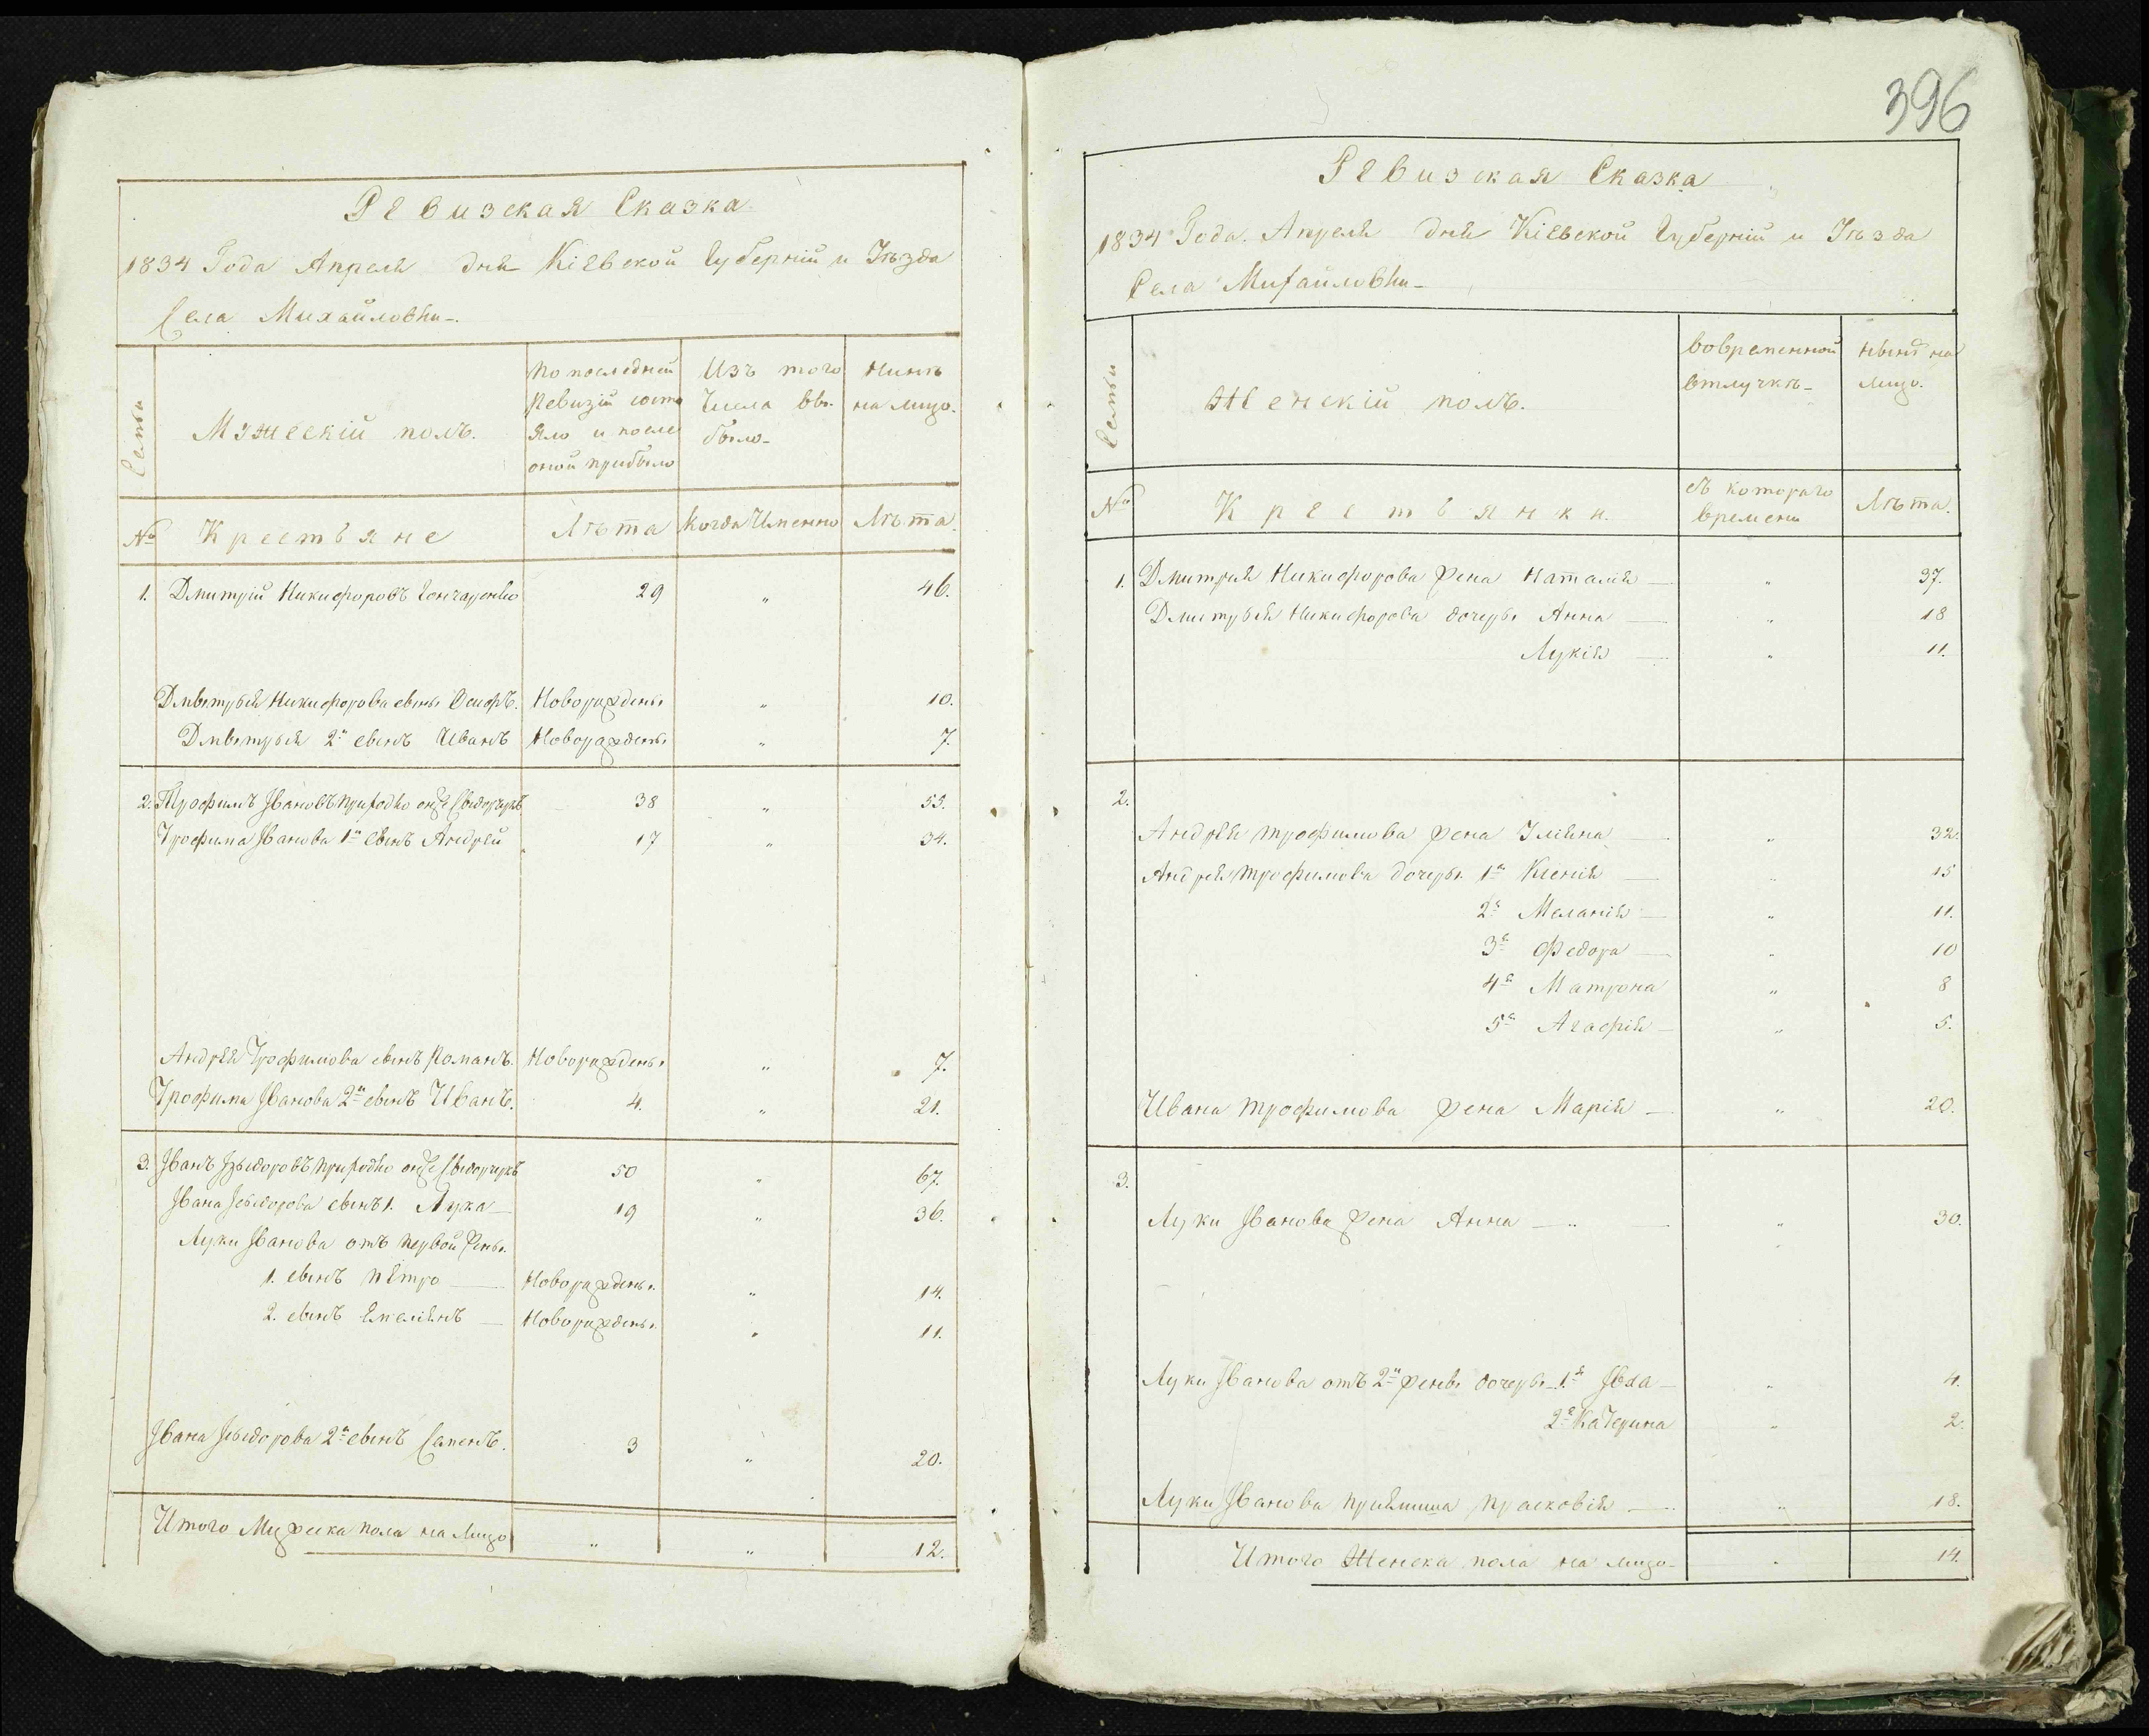 Ревизская Сказка
1834 Года Апреля дня Кіевской Губерніи и Уѣзда
Села Михайловки
Семьи
Мужескій полъ.
По последней
Ревизіи состо
яло и после
оной прибыло
Изъ того
Числа вы
было
Нинѣ
на лицо.
№
Крестьяне
Лѣта
Когда Именно
Лѣта.
1. Дмитрій Никифоровъ Гончаренко 29 „ 46.
Дмытрыя Никифорова сынъ Осифъ. Новорожденъ „ 10.
Дмытрыя 2й сынъ Иванъ Новорожденъ „ 7.
2. Трофимъ Івановъ Приходко онже Сыдорчукъ 38 „ 55.
Трофима Іванова 1й сынъ Андрей 17 „ 34.
Андрея Трофимова сынъ Романъ. Новорожденъ „ 7.
Трофима Іванова 2й сынъ Иванъ. 4. „ 21.
3. Іванъ Ісыдоровъ Приходко онже Сыдорчукъ 50 „ 67.
Івана Ісыдорова сынъ 1. Лука 19 „ 36.
Луки Іванова отъ первой жены
1. сынъ Петро Новорожденъ „ 14.
2. сынъ Емеліянъ Новорожденъ „ 11.
Івана Ісыдорова 2й сынъ Семенъ. 3 „ 20.
Итого Мужеска пола на Лицо „ „ 12.
396
Ревизская Сказка
1834 Года Апреля дня Кіевской Губерніи и Уѣзда
Села Михайловки
Семьи
Женскій полъ.
Вовременной
Отлучкѣ
Нынѣ на
лицо.
№
Крестьянки.
Съ котораго
времени
Лѣта.
1. Дмитрия Никифорова жена Наталія „ 37.
Дмитрыя Никифорова дочеры Анна „ 18
Лукія „ 11.
2.
Андрея Трофимова жена Уліяна „ 32.
Андрея Трофимова дочеры 1я Ксенія „ 15
2я Меланія „ 11.
3я Федора „ 10
4я Матрона „ 8
5я Агафія „ 5.
Ивана Трофимова жена Марія „ 20.
3.
Луки Іванова жена Анна „ 30.
Луки Іванова отъ 2й жены дочеры 1я Івга „ 4.
2я Катерина „ 2.
Луки Іванова Пріймиша Прасковія „ 18.
Итого Женска пола на лицо „ 14.